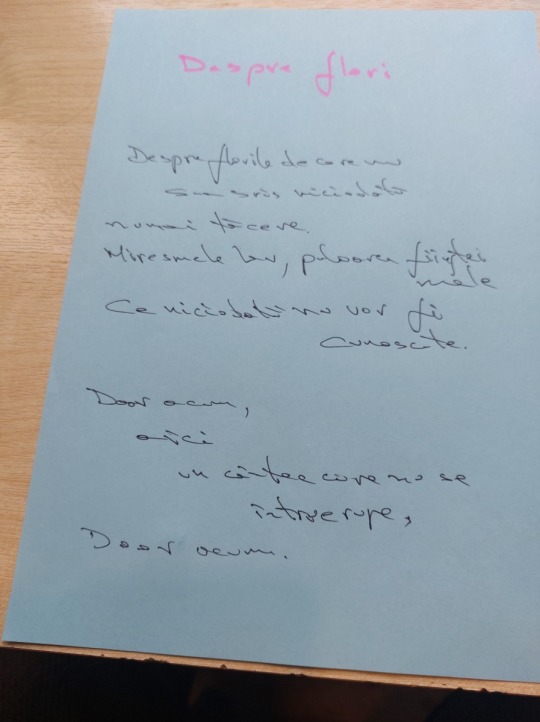 Despre flori
Despre florile de care nu
am scris niciodată
numai tăcere.
Miresmele lor, ploarea ființei
mele
Ce niciodată nu vor fi
cunoscute.
Doar acum,
aici
un cântec care nu se
întrerupe,
Doar acum.